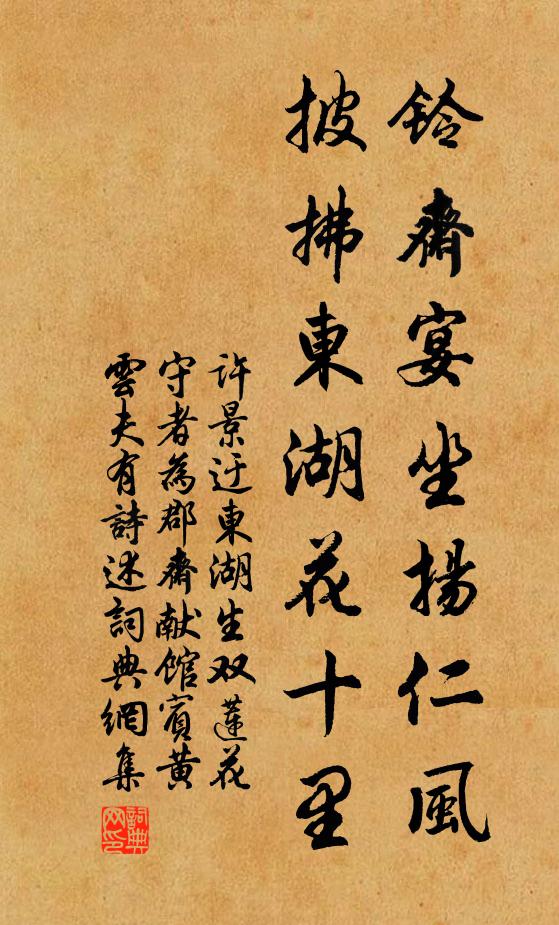 鈴齋宴坐揚仁風
披拂東湖花十里
許景迂東湖生双蓮花
守者為郡齋献館賓黄
雲夫有詩述詞典網集
詞典网印